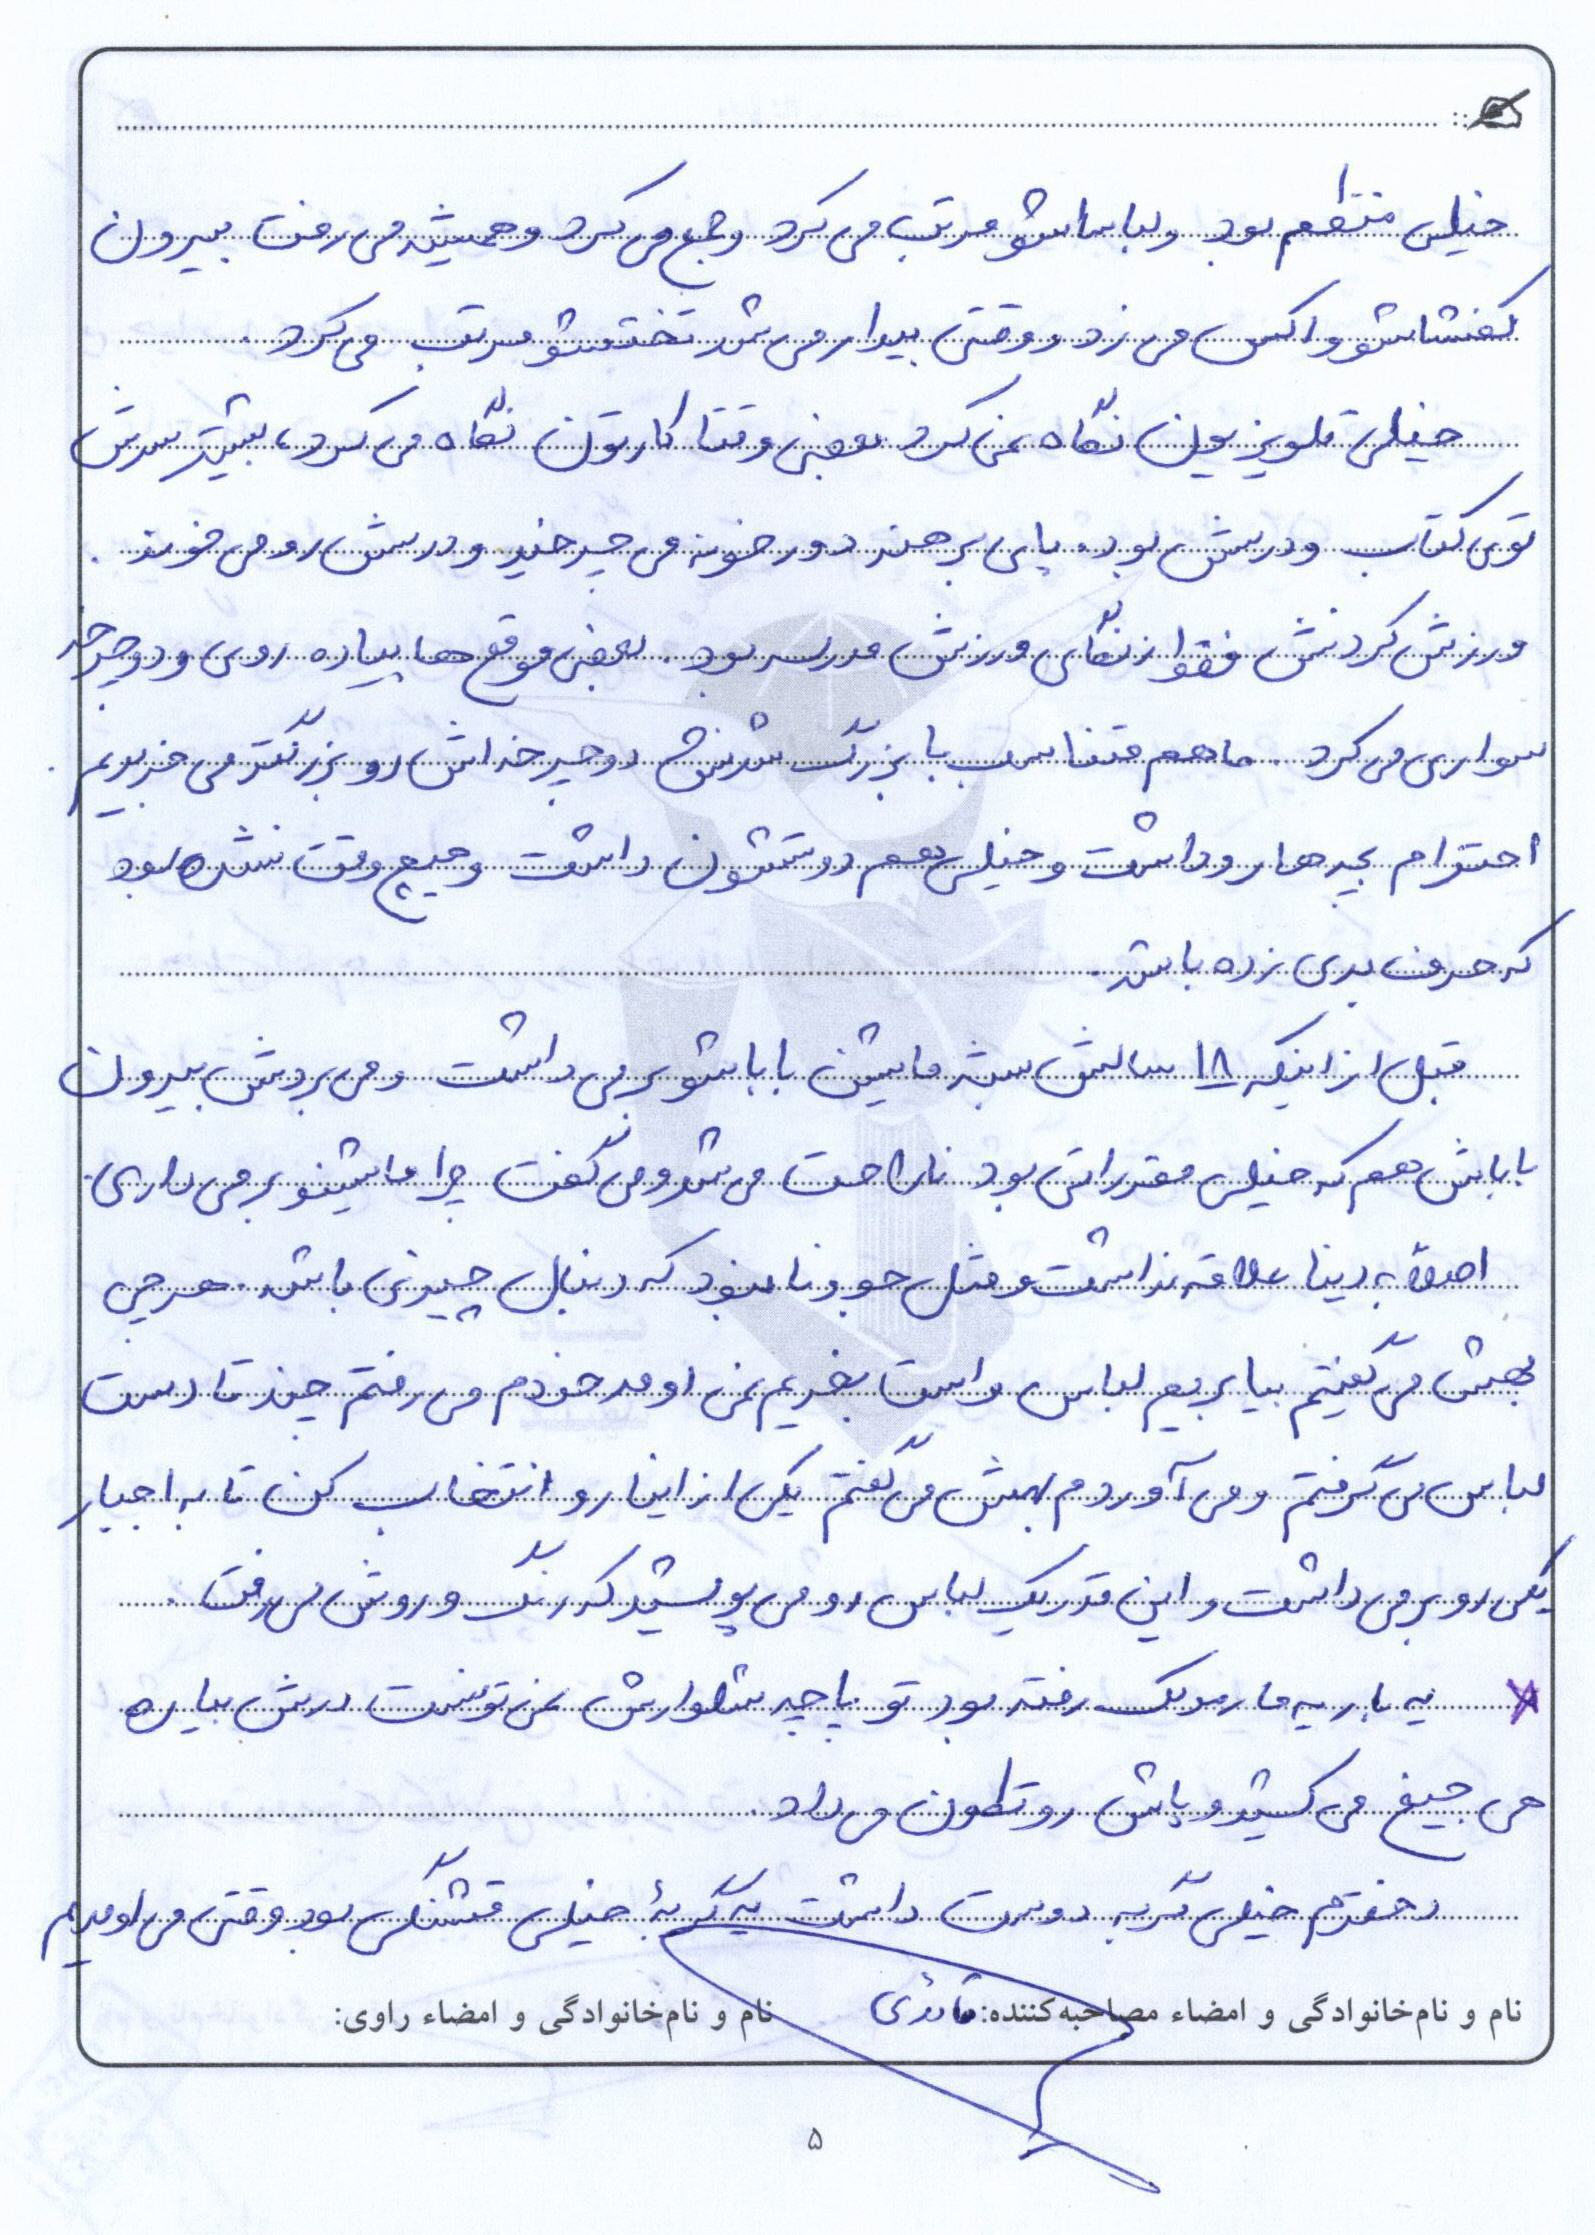 خیلی منظم بود و لباساشو مرتب می کرد و جمع می کرد و همیشه می رفت بیرون
کفشاشو واکس می زد و وقتی بیدار می شد تختشو مرتب می کرد.
خیلی تلویزیون نگاه نمی کرد بعضی وقتا کارتون نگاه می کرد، بیشتر سرش
توی کتاب و درسش بود. پای برهنه دور خونه می چرخید و درسش رو می خوند.
ورزش کردنش فقط زنگای ورزش مدرسه بود. بعضی موقع ها پیاده روی و دوچرخه
سواری می کرد. ما هم متناسب با بزرگ شدنش دوچرخه اش رو بزرگتر می خریدیم.
احترام بچه ها رو داشت و خیلی هم دوستشون داشت و هیچ وقت نشده بود
که حرف بدی زده باشد.
قبل از اینکه ۱۸ سالش بشه ماشین باباشو بر می داشت و می بردش بیرون
باباش هم که خیلی مقرراتی بود ناراحت می شد و می گفت چرا ماشینو بر می داری.
اصلاً به دنیا علاقه نداشت و مثل جوونا نبود که دنبال چیزی باشد. هر چی
بهش می گفتیم بیا بریم لباس واست بخریم نمی اومد خودم می رفتم چند تا دست
لباس می گرفتم و می آوردم بهش می گفتم یکی از اینا رو انتخاب کن تا به اجبار
یکی رو بر می داشت و این قدر یک لباس رو می پوشید که رنگ و روش می رفت.
یه بار یه مارمولک رفته بود تو پاچه شلوارش نمی تونست درش بیاره
هی جیغ می کشید و پاش رو تکون می داد.
دخترم خیلی گربه دوست داشت یه گربۀ خیلی قشنگی بود وقتی می اومدیم
نام و نام‌خانوادگی و امضاء مصاحبه‌کننده: نام و نام‌خانوادگی و امضاء راوی:
۵